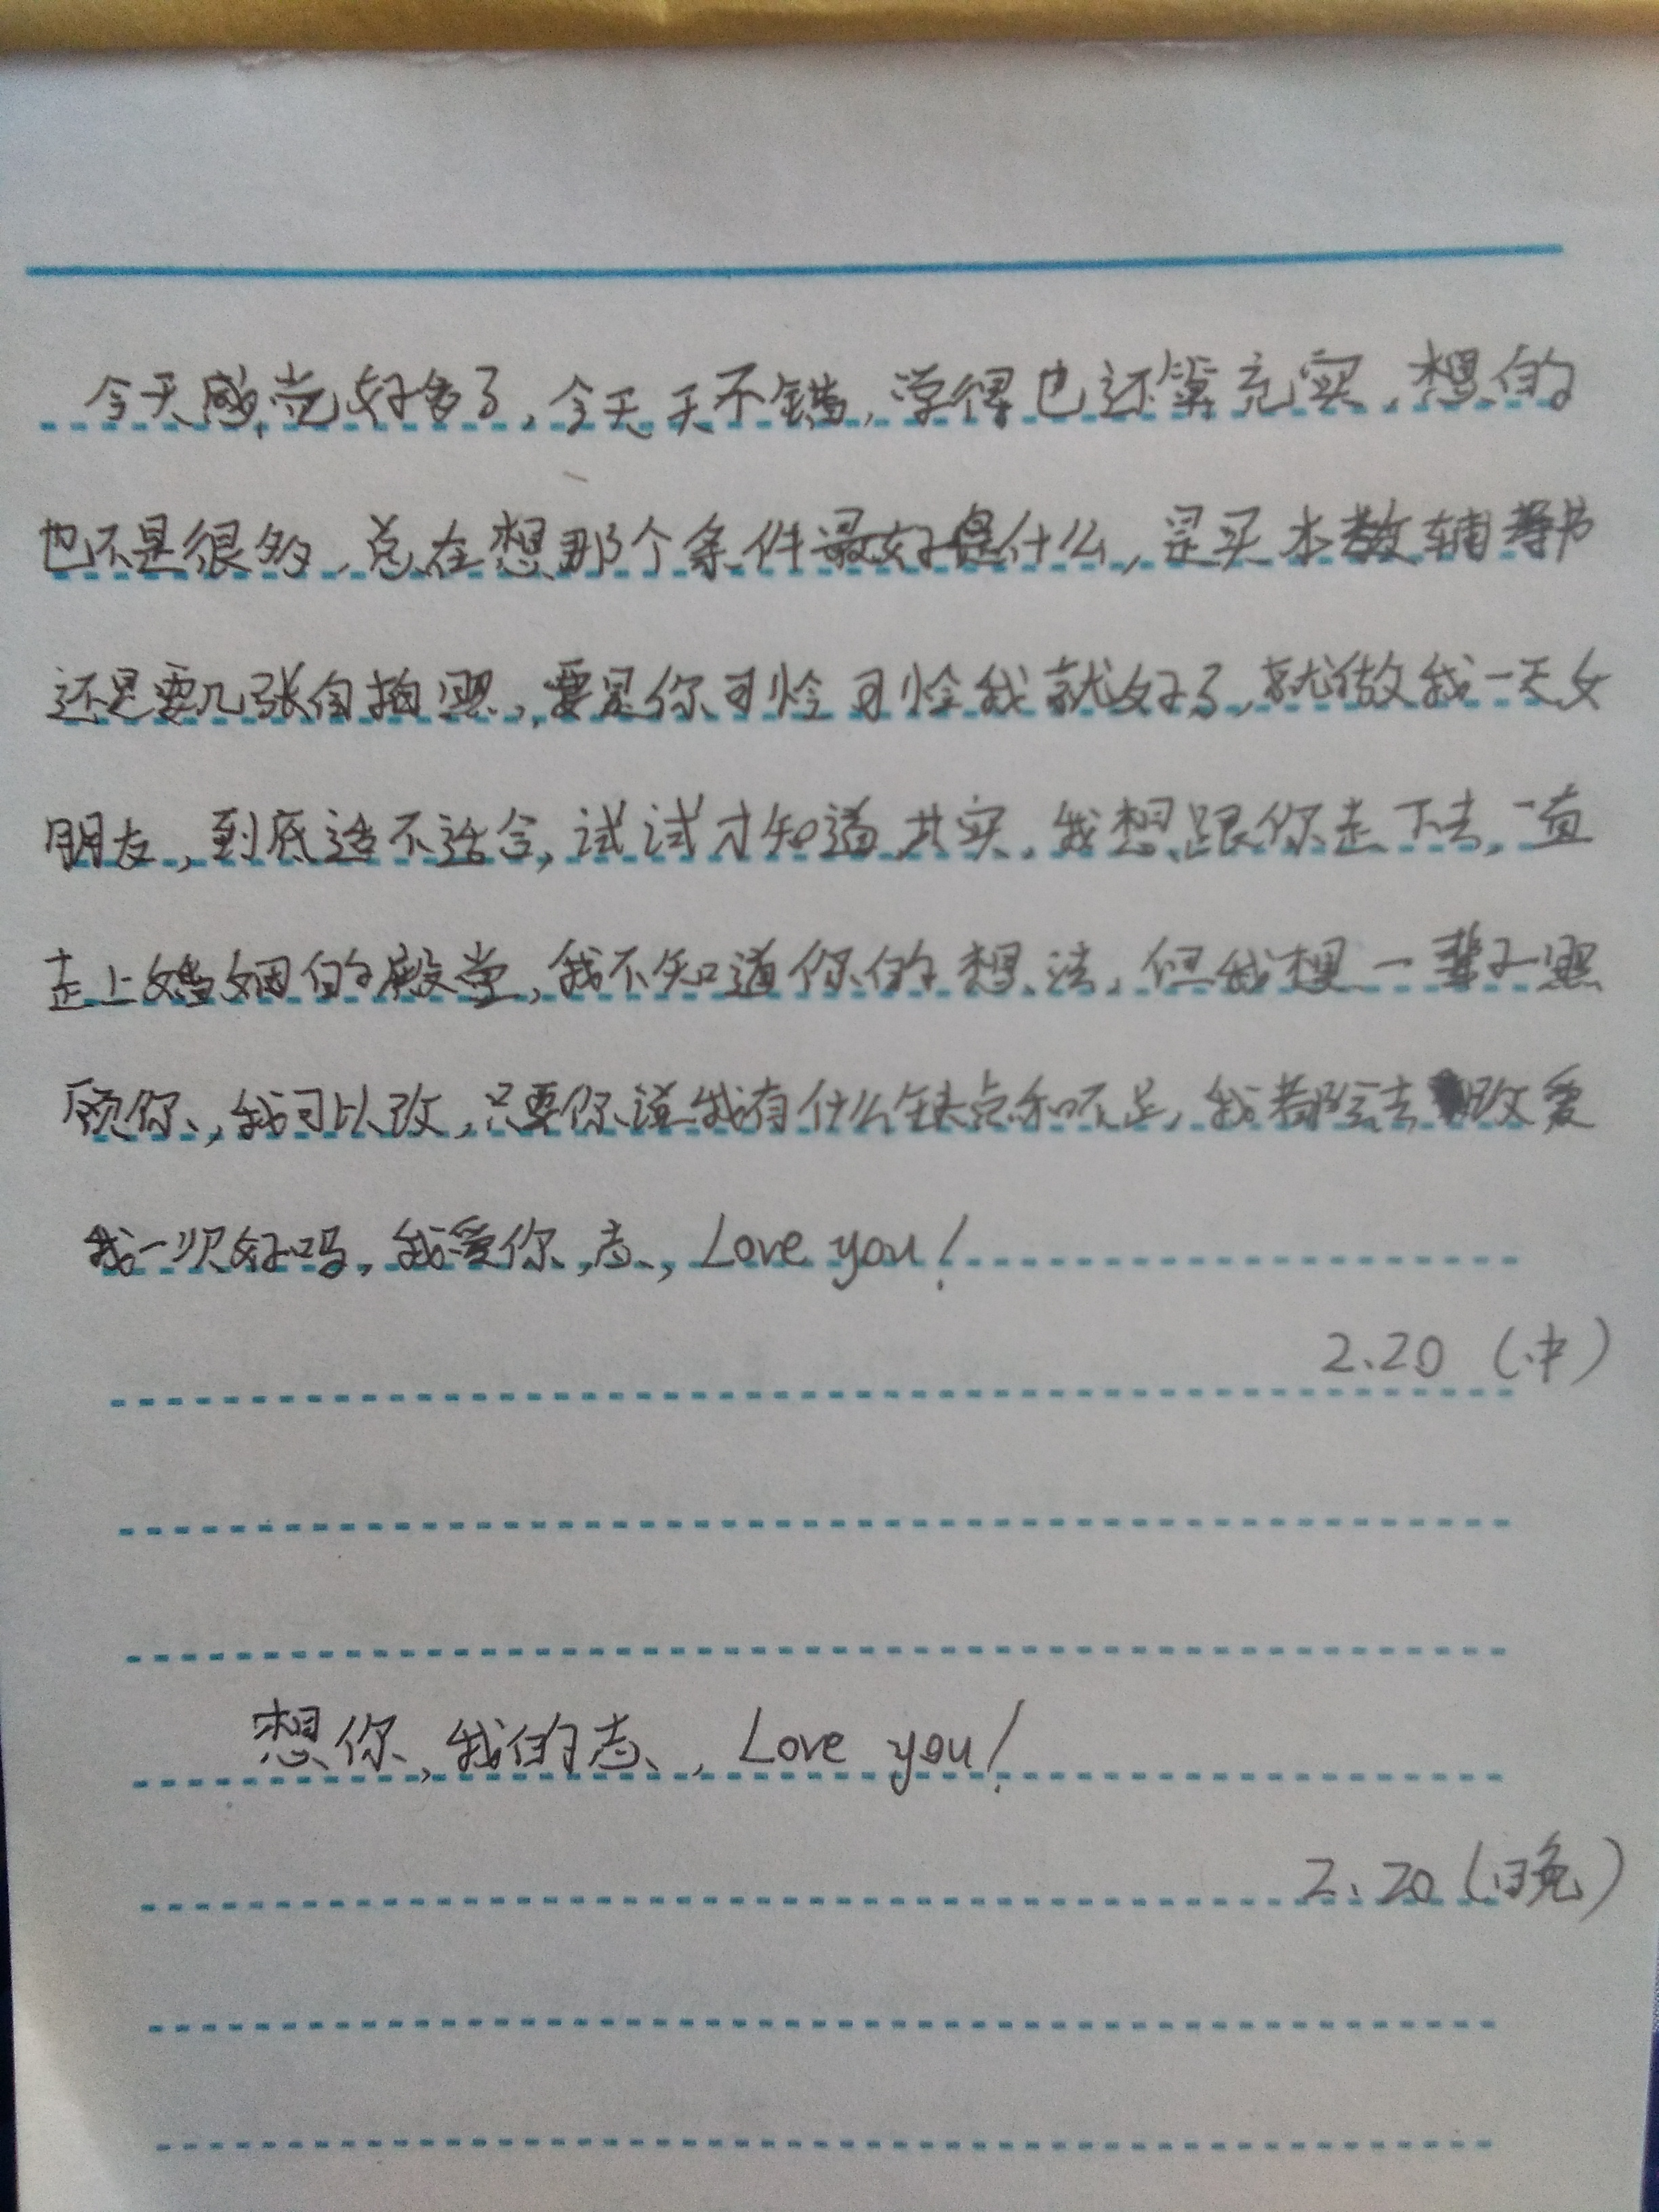 今天感觉好多了,今天天不错,学得也还算充实,想的
也不是很多,总在想那个条件最好是什么,是买本数辅导书
还是要几张自拍照,要是你可怜可怜我就好了,就做我一天女
朋友,到底适不适合,试试才知道,其实,我想跟你走下去,一直
走上婚姻的殿堂,我不知道你的想法,但我想一辈子照
顾你,我可以改,只要你说我有什么缺点和不足,我都会去改爱
我一次好吗,我爱你,Love you!
2.20(中)
想你,我的,Love you!
2.20(晚)